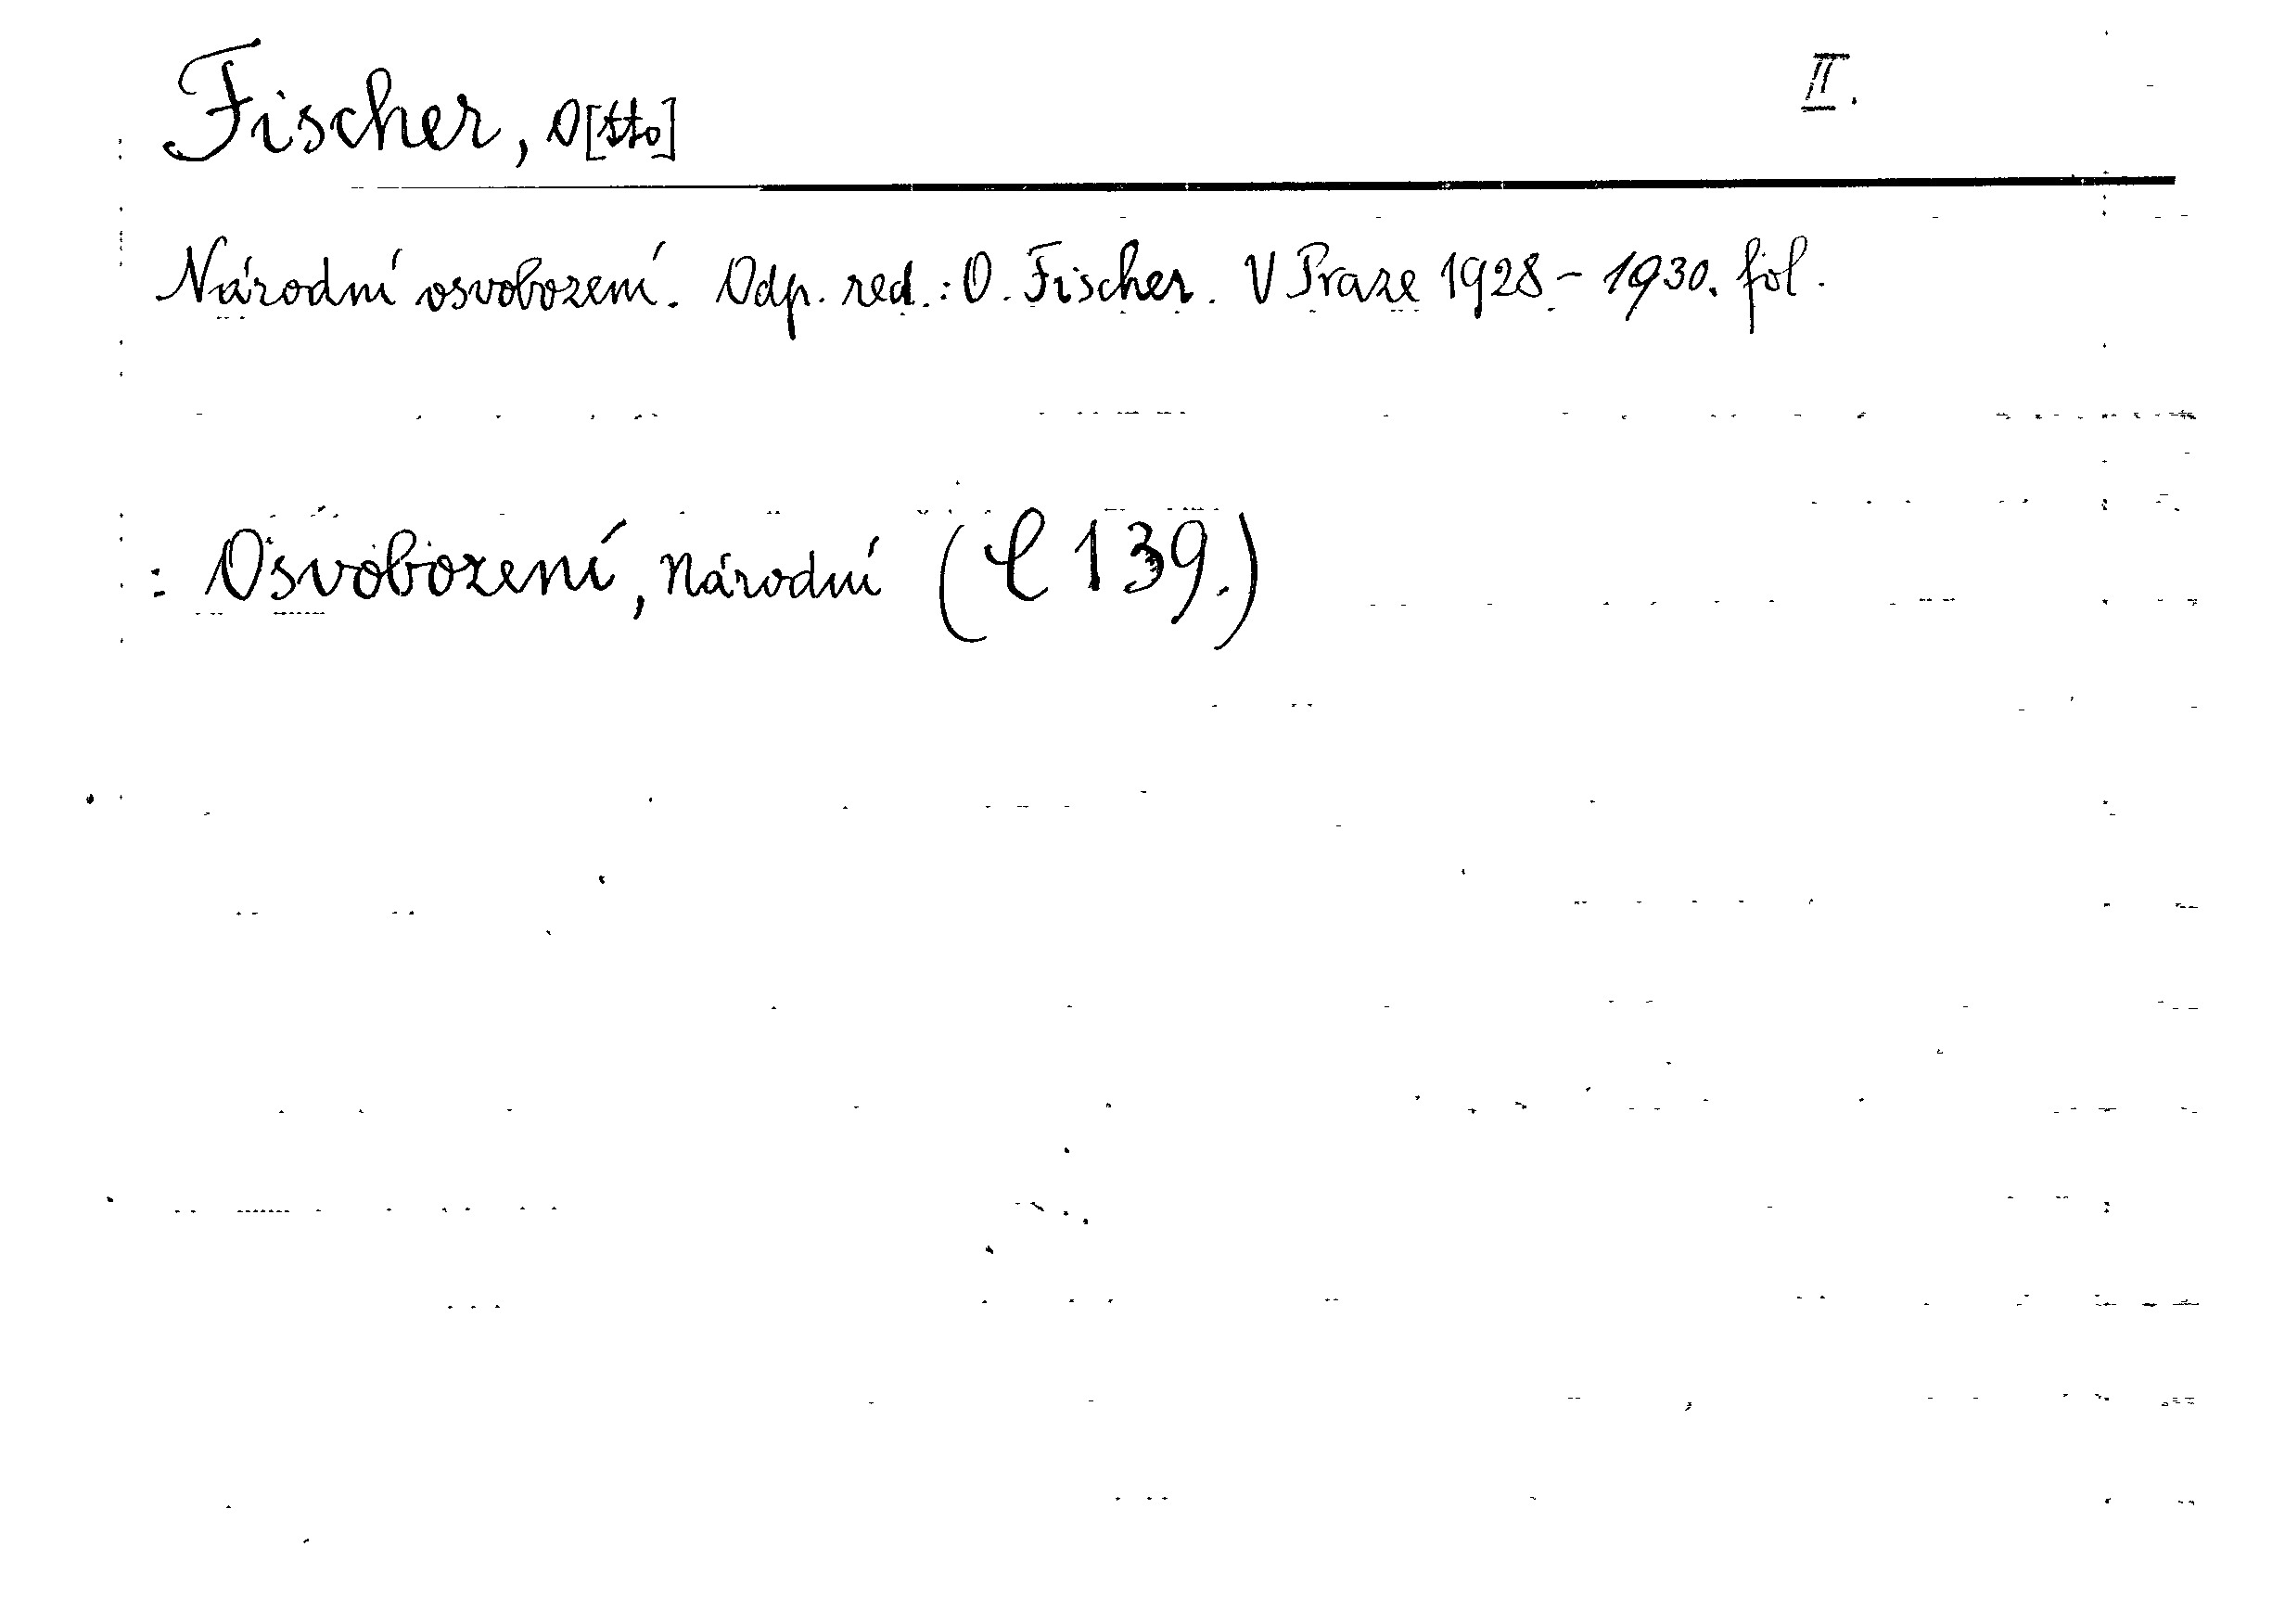 Fischer, O[tto]
II.
Národní osvobození. Odp. red.: O. Fischer. V Praze 1928 - 1930. fol.
: Osvobození, Národní (C 139.)